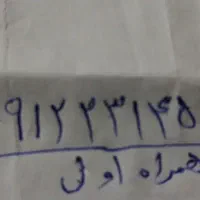 ۹۱۲۳۳۱۴۵
همراه اول